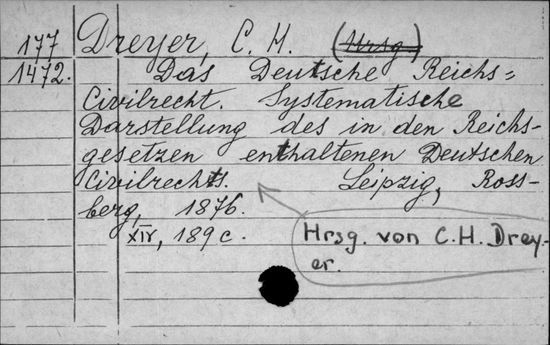 177 Dreyer, C. H. (Hrsg.)
1472. Das Deutsche Reichs=
Civilrecht. Systematische
Darstellung des in den Reichs-
gesetzen enthaltenen Deutschen
Civilrechts. Leipzig, Ross-
berg, 1876.
XIV, 189 c.
Hrsg. von C.H. Drey-
er.